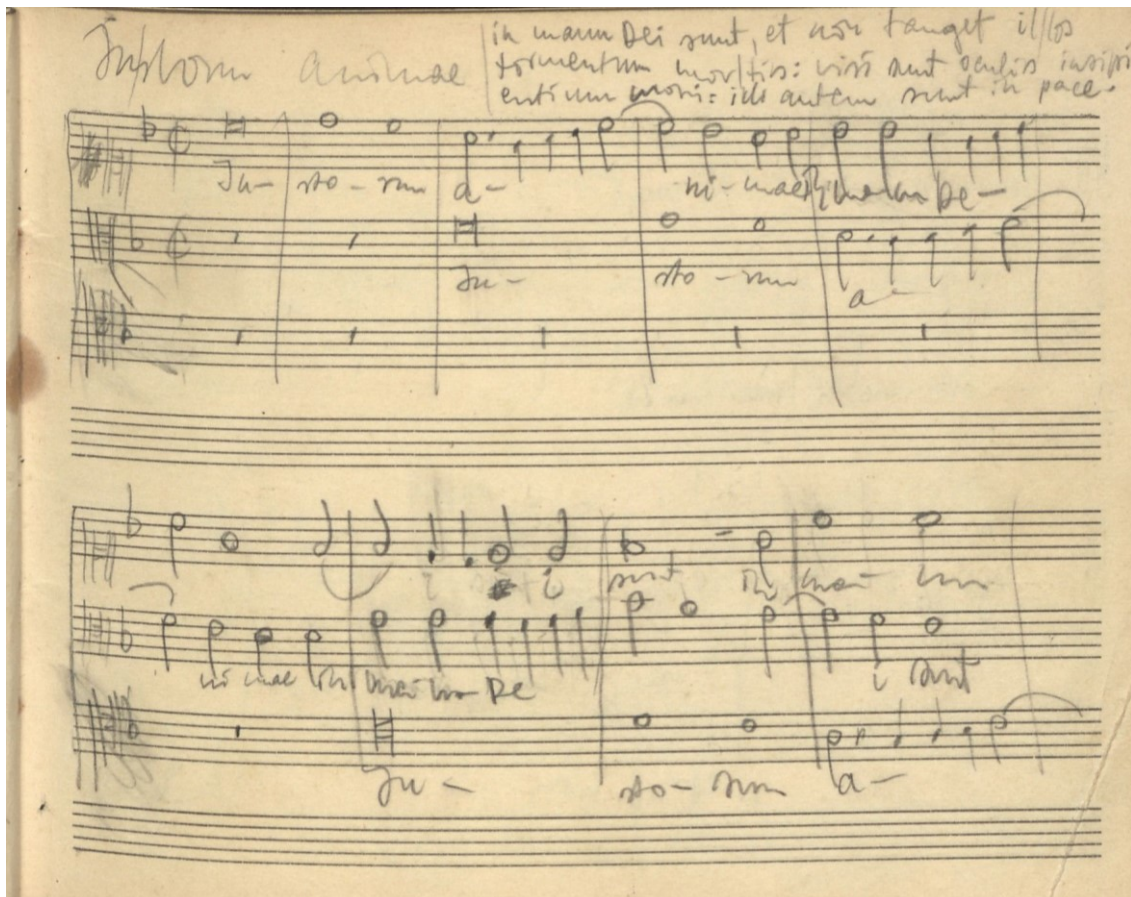 Justorum animae
in manu Dei sunt, et non tanget illos
tormentum mortis: visi sunt oculis insipi
entium mori: illi autem sunt in pace.
Ju- sto - rum a- ni - mae in manu De -
Ju - sto - rum a -
i sunt in ma- nu
ni mae in manu De i sunt
Ju - sto - rum a -